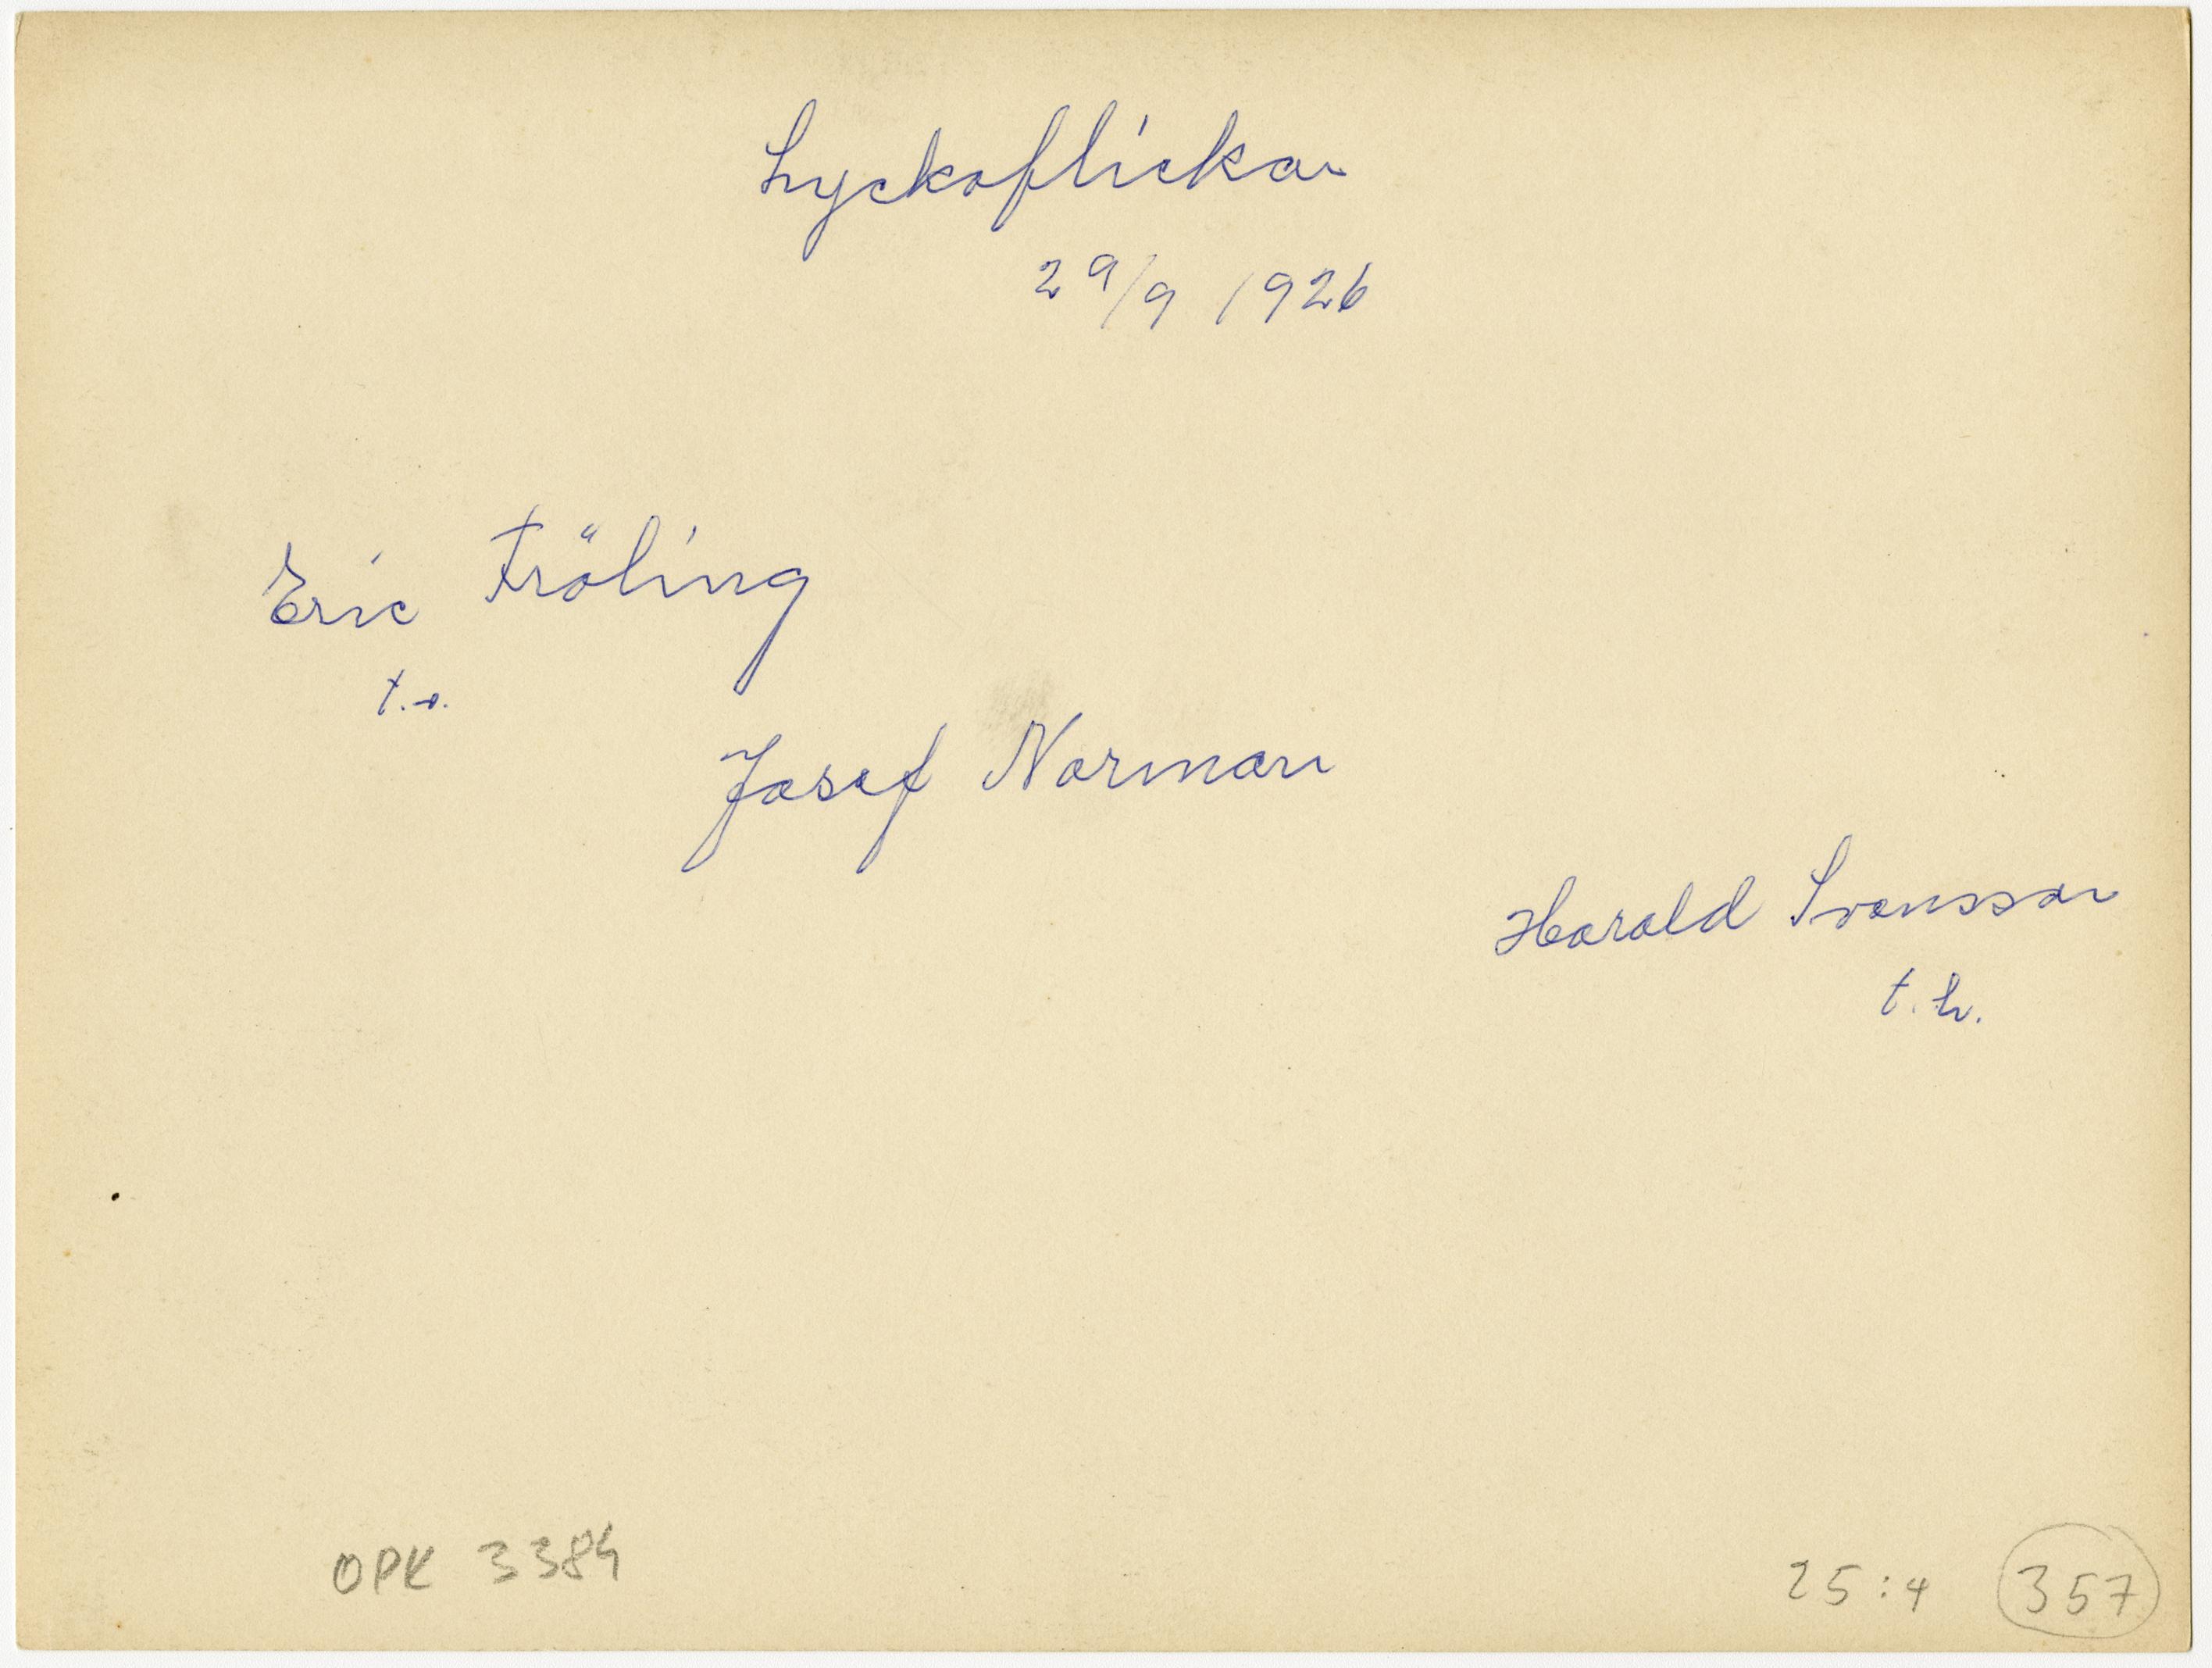 Lyckoflickan
29/9 1926
Eric Fröling
t.v.
Josef Norman
Harald Svensson
t.h.
OPK 3384
25:4 357